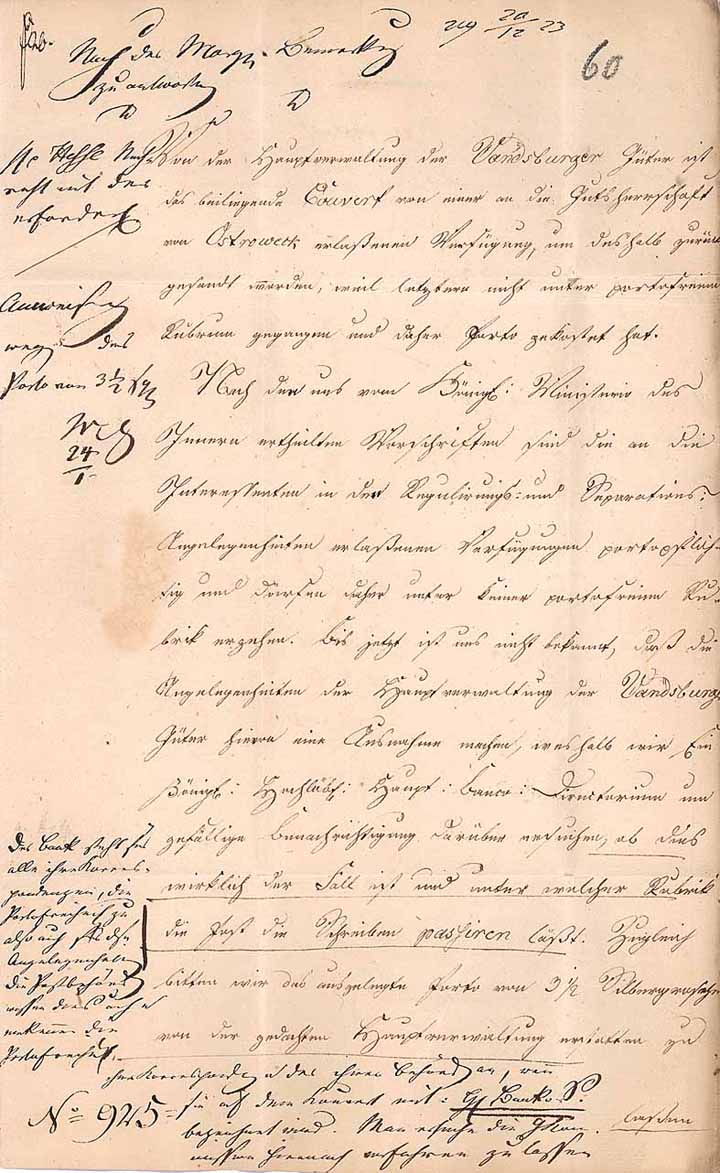 Nach der Marg. Bemerkg
zu antworten
20/12 23
60
Von der Hauptverwaltung der Vandsburger Güter ist
das beiliegende Couvert von einer an die Gutsherrschaft
von Ostroweck erlaßenen Verfügung, um deshalb zurück
gesandt worden, weil letztere nicht unter portofreiem
Rubrum gegangen und daher Porto gekostet hat.
Nach den uns vom Königl: Ministerio des
Innern ertheilten Vorschriften sind die an die
Interessenten in den Regulirungs- und Separations-
Angelegenheiten erlaßenen Verfügungen portopflich-
tig und dürfen daher unter keiner portofreien Ru-
brik ergehen. Bis jetzt ist uns nicht bekannt, daß die
Angelegenheiten der Hauptverwaltung der Vandsburger
Güter hievon eine Ausnahme machen, weshalb wir Ein
Königl: Hochlöbl: Haupt: Banco: Directorium um
gefällige Benachrichtigung darüber ersuchen, ob dies
wirklich der Fall ist und unter welcher Rubrik
die Post die Schreiben passiren läßt. Zugleich
bitten wir das ausgelegte Porto von 3 1/2 Silbergroschen
von der gedachten Hauptverwaltung erstatten zu
lassen
erfordert
Anweisung
wegen des
Porto von 3 1/2 sg
24/1
Der Bank steht für
alle ihre Korres-
pondenzen, die
Portofreiheit zu
also auch für diese
Angelegenheiten
die Postbehörden
erkennen die
Portofreiheit
ihrer Korrespondenz
sie auf dem Couvert mit: Bank. S.
bezeichnet wird. Man ersuche die
hiernach verfahren zu lassen
No 925